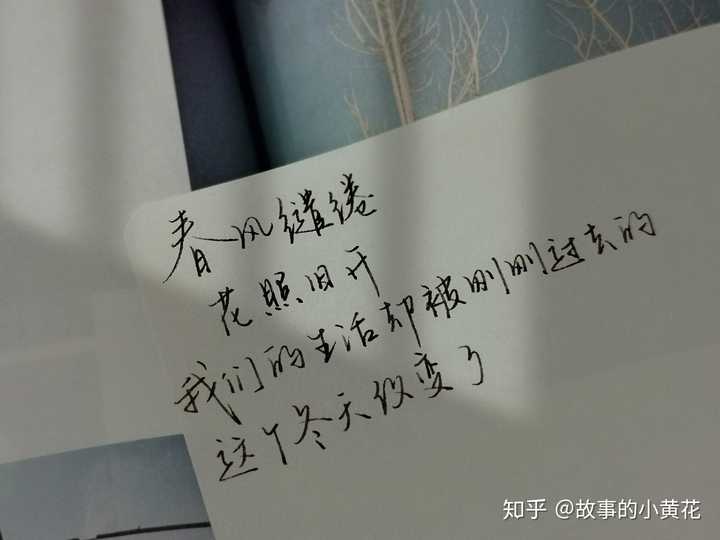 春风缱绻
花照旧开
我们的生活却被刚刚过去的
这个冬天改变了
知乎 @故事的小黄花